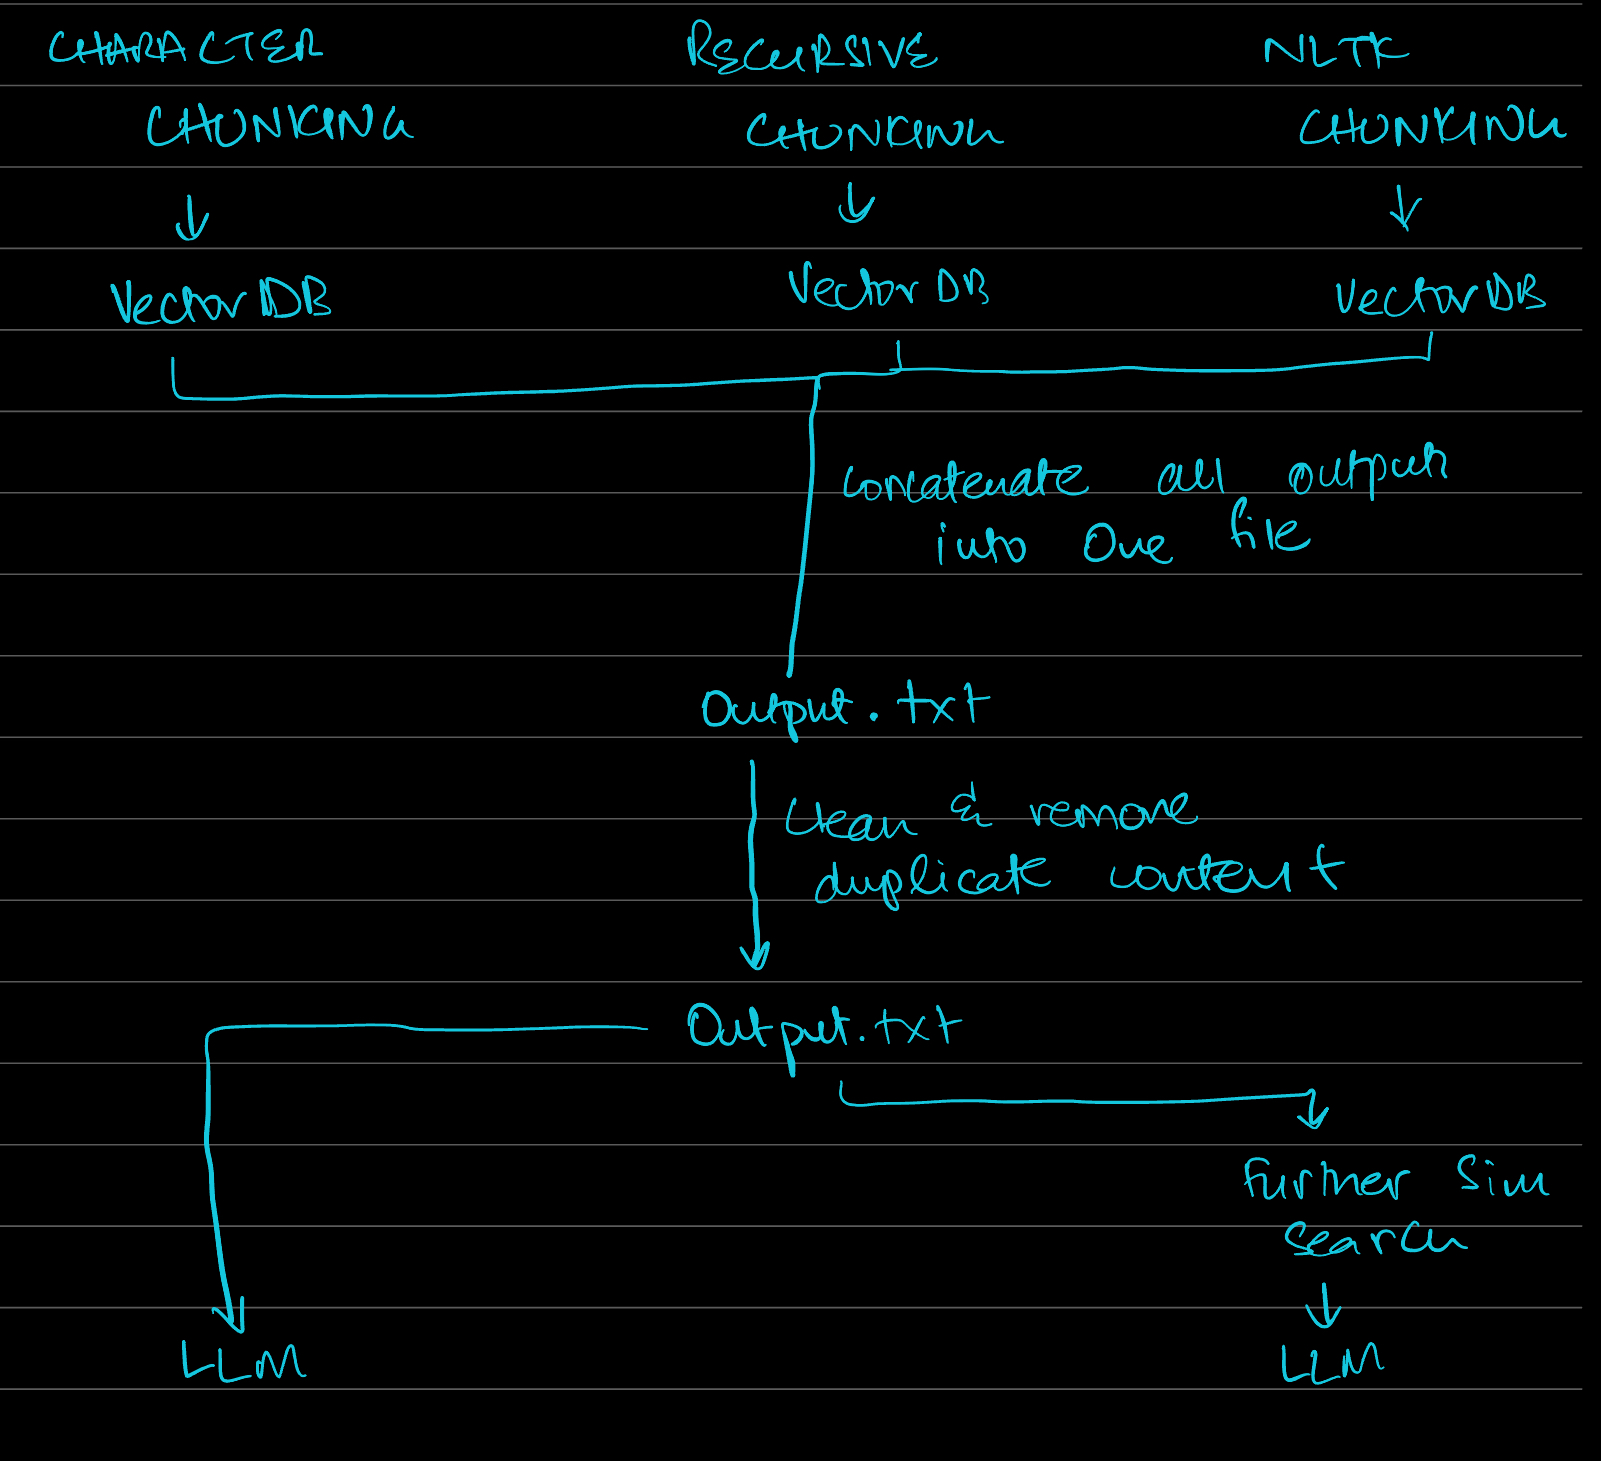 CHARACTER
CHUNKING
RECURSIVE
CHUNKING
NLTK
CHUNKING
Vector DB
Vector DB
Vector DB
Concatenate all output
into One file
Output.txt
Clean & remove
duplicate content
Output.txt
Further Sim
Search
LLM
LLM